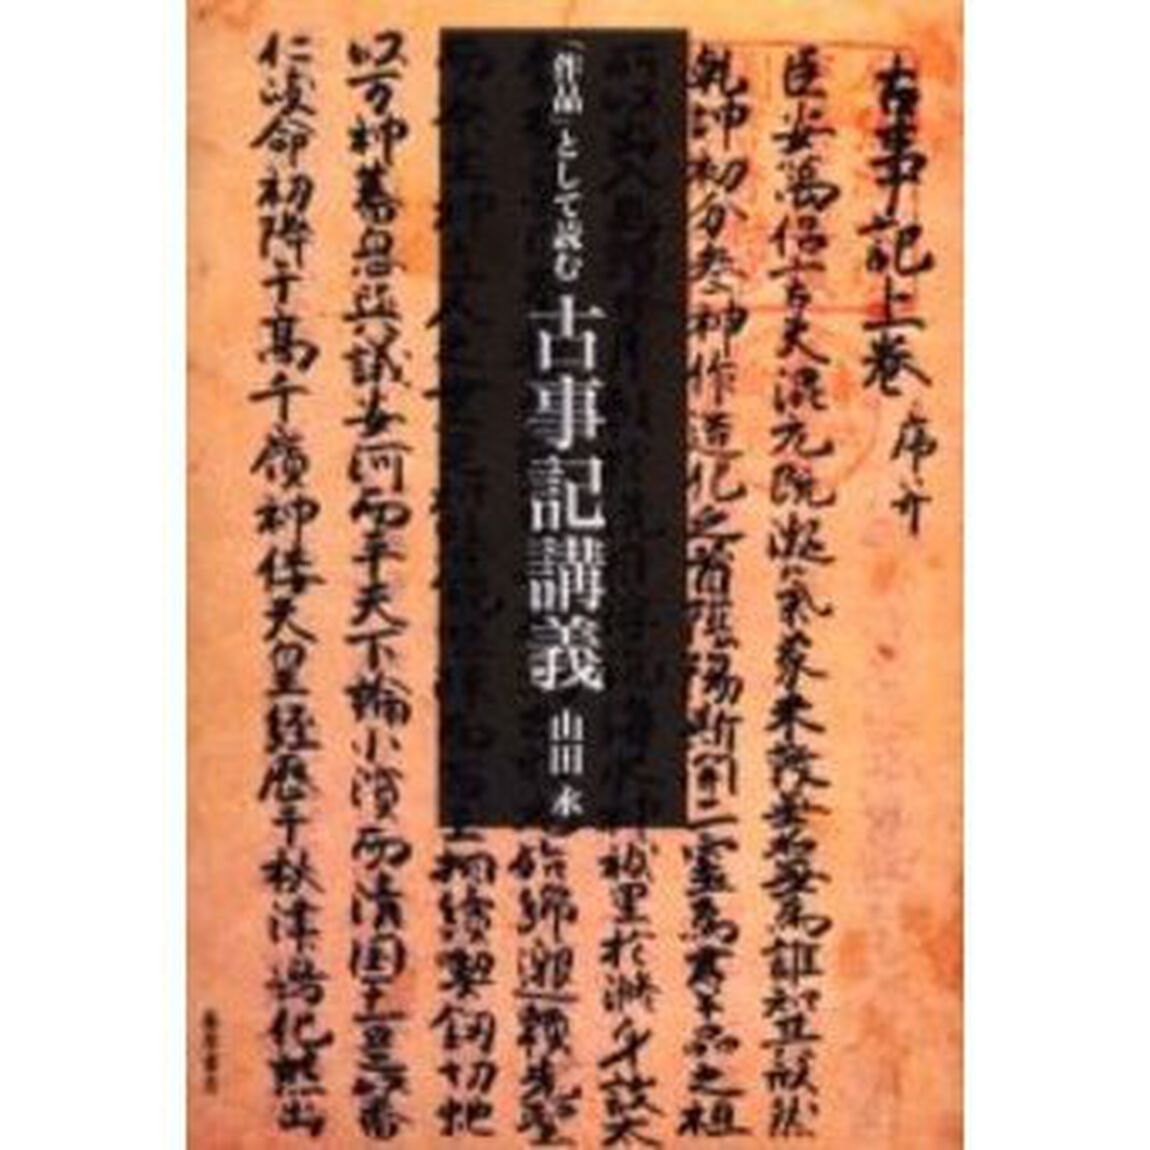 古事記上巻 序并
臣安萬侶言夫混元既凝氣象未效無名無為誰知其形然
乾坤初分参神作造化之首陰陽斯開二霊為群品之祖
於滌身故太
綿邈頼先聖
相續喫釼切蛇
以万神蕃息與議安河而平天下論小濱而清国土是以番
仁岐命初降于高千嶺神倭天皇経歴于秋津嶋化熊出
「作品」として読む 古事記講義 山田 永